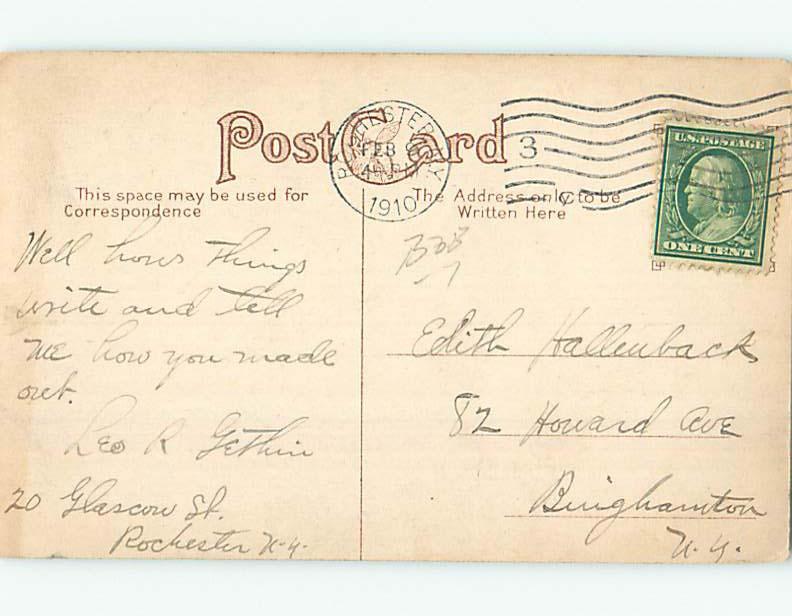 Post Card
This space may be used for
Correspondence
The Address only to be
Written Here
ROCHESTER, N.Y.
FEB
1910
3
U.S. POSTAGE
ONE CENT
Well hows things
write and tell
me how you made
out.
Leo R Gethin
20 Glascow St.
Rochester N.Y.
Edith Hallenback
82 Howard Ave
Binghamton
N.Y.